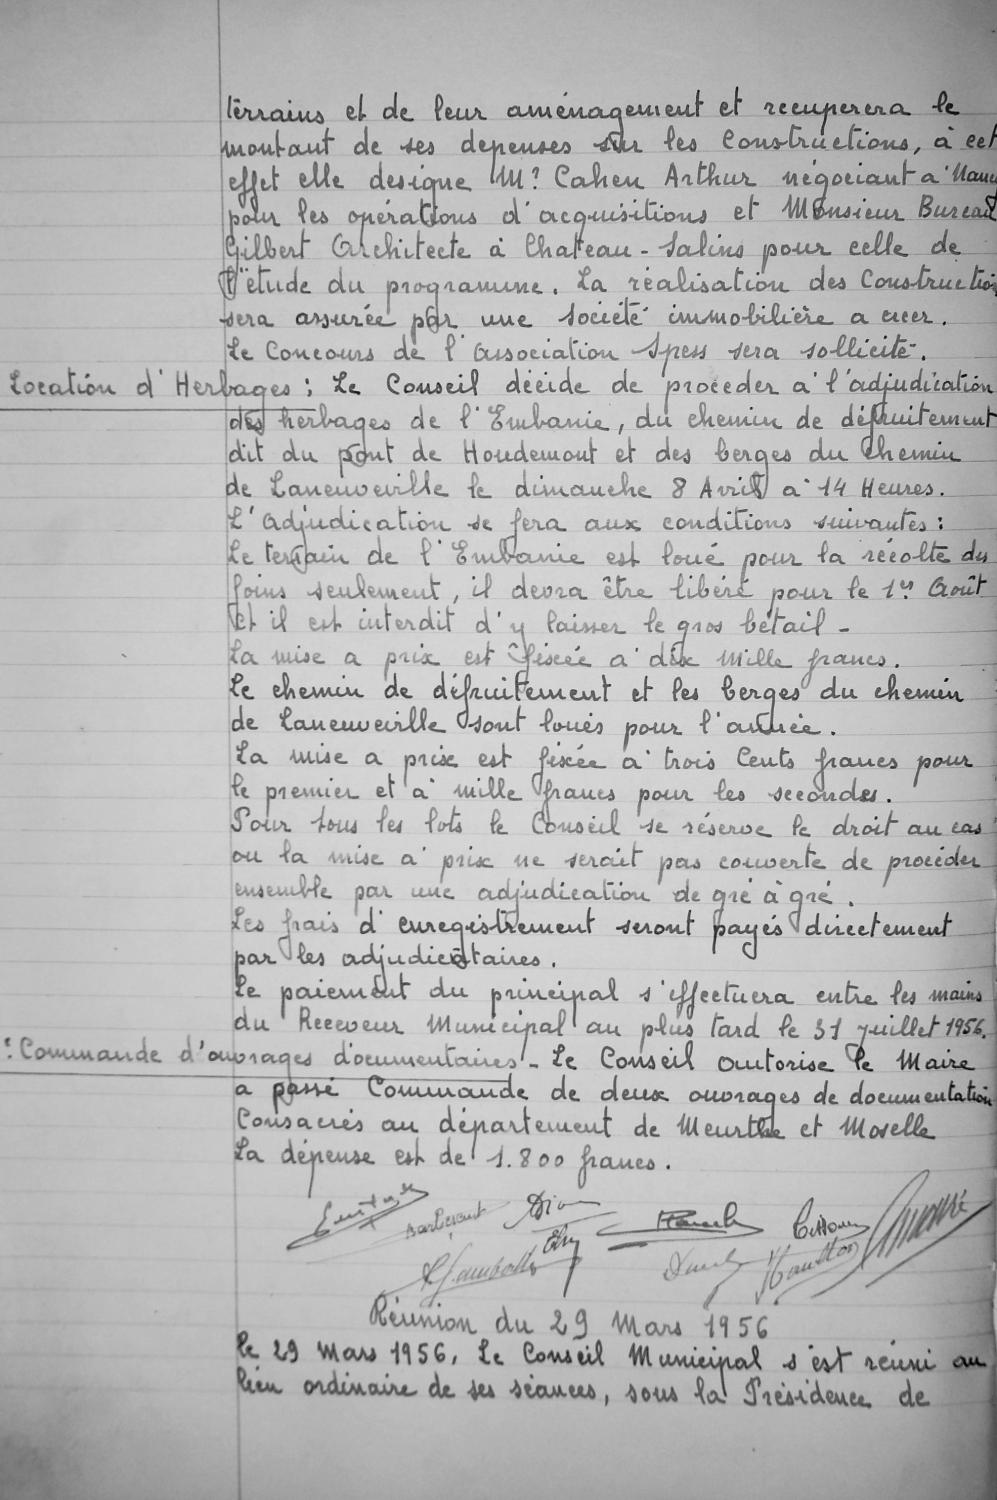 terrains et de leur aménagement et recuperera le
montant de ses depenses sur les Constructions, à cet
effet elle designe Mr Cahen Arthur négociant a Nancy
pour les opérations d'acquisitions et Monsieur Bureau
Gilbert Architecte à Chateau-Salins pour celle de
l'étude du programme. La réalisation des Construction
sera assurée par une Société immobilière a creer.
Le Concours de l'Association Spess sera sollicité.
Location d'Herbages : Le Conseil décide de procéder a l'adjudication
des herbages de l'Embanie, du chemin de défruitement
dit du pont de Houdemont et des berges du Chemin
de Laneuveville le dimanche 8 Avril a 14 Heures.
L'Adjudication se fera aux conditions suivantes :
Le terrain de l'Embanie est loué pour la récolte des
foins seulement, il devra être libéré pour le 1er Août
Et il est interdit d'y laisser le gros bétail -
La mise a prix est fixée a dix Mille francs.
Le chemin de défruitement et les berges du chemin
de Laneuveville sont loués pour l'année.
La mise a prix est fixée a trois Cents francs pour
le premier et à mille francs pour les secondes.
Pour tous les lots le Conseil se réserve le droit au cas
ou la mise a prix ne serait pas couverte de procéder
ensemble par une adjudication de gré à gré.
Les frais d'enregistrement seront payés directement
par les adjudicataires.
Le paiement du principal s'effectuera entre les mains
du Receveur Municipal au plus tard le 31 Juillet 1956.
: Commande d'ouvrages documentaires - Le Conseil autorise le Maire
a passé Commande de deux ouvrages de documentation
Consacrés au département de Meurthe et Moselle
La dépense est de 1.800 francs.
Réunion du 29 Mars 1956
le 29 Mars 1956, Le Conseil Municipal s'est réuni au
lieu ordinaire de ses séances, sous la Présidence de